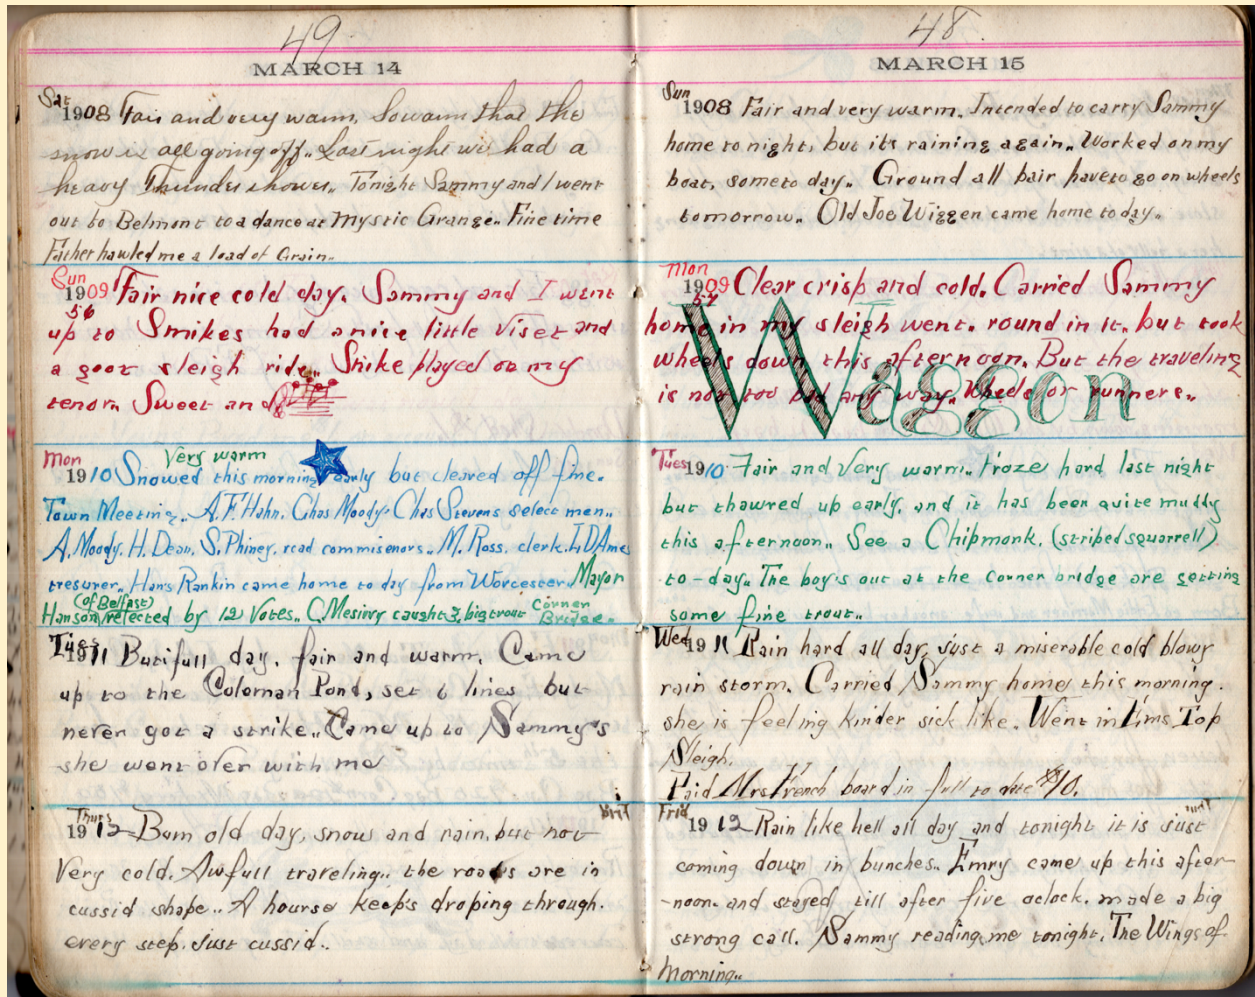 49
MARCH 14
Sat
1908 Fair and very warm. So warm that the
snow is all going off.. Last night we had a
heavy Thunder shower.. Tonight Sammy and I went
out to Belmont to a dance at Mystic Grange.. Fine time
Father hawled me a load of Grain..
Sun
1909 Fair nice cold day. Sammy and I went
56
up to Smikes had a nice little viset and
a goot sleigh ride.. Smike played on my
tenor. Sweet and
Mon Very warm
1910 Snowed this morning early but cleared off fine.
Town Meeting.. A.F. Hahn, Chas Moody, Chas Stevens select men..
A. Moody. H. Dean, S. Phiney, road commisenors.. M. Ross. clerk. I.D Ames
tresurer.. Hans Rankin came home to day from Worcester. Mayor
(of Belfast)
Hanson relected by 12 Votes.. C. Meservy caught 3 big trout Corner
Bridge..
Tues
1911 Butifull day, fair and warm. Came
up to the Coleman Pond, set 6 lines but
never got a strike.. Came up to Sammy's
she went over with me
Thurs
1912 Bum old day, snow and rain, but not
very cold. Awfull traveling.. the roads are in
cussid shape.. A hourse keep's droping through.
every step. Just cussid..
48
MARCH 15
Sun
1908 Fair and very warm. Intended to carry Sammy
home to night, but it's raining again.. Worked on my
boat, some to day.. Ground all bair have to go on wheels
tomorrow.. Old Joe Wiggen came home to day..
Mon
1909 Clear crisp and cold. Carried Sammy
57
home in my sleigh went. round in it. but took
wheels down this afternoon. But the traveling
is not too bad any way. Wheels or runners..
Waggon
Tues
1910 Fair and very warm.. Froze hard last night
but thawred up early, and it has been quite muddy
this afternoon.. See a Chipmonk. (striped squarrell)
to-day.. The boy's out at the corner bridge are getting
some fine trout..
Wed
1911 Rain hard all day, just a miserable cold blowy
rain storm. Carried Sammy home this morning.
she is feeling kinder sick like. Went in Ems Top
Sleigh.
Paid Mrs French board in full to date $10.
Frid
1912 Rain like hell all day and tonight it is just
coming down in bunches.. Emry came up this after-
-noon- and stayed till after five oclock. made a big
strong call. Sammy reading me tonight, The Wings of
Morning..